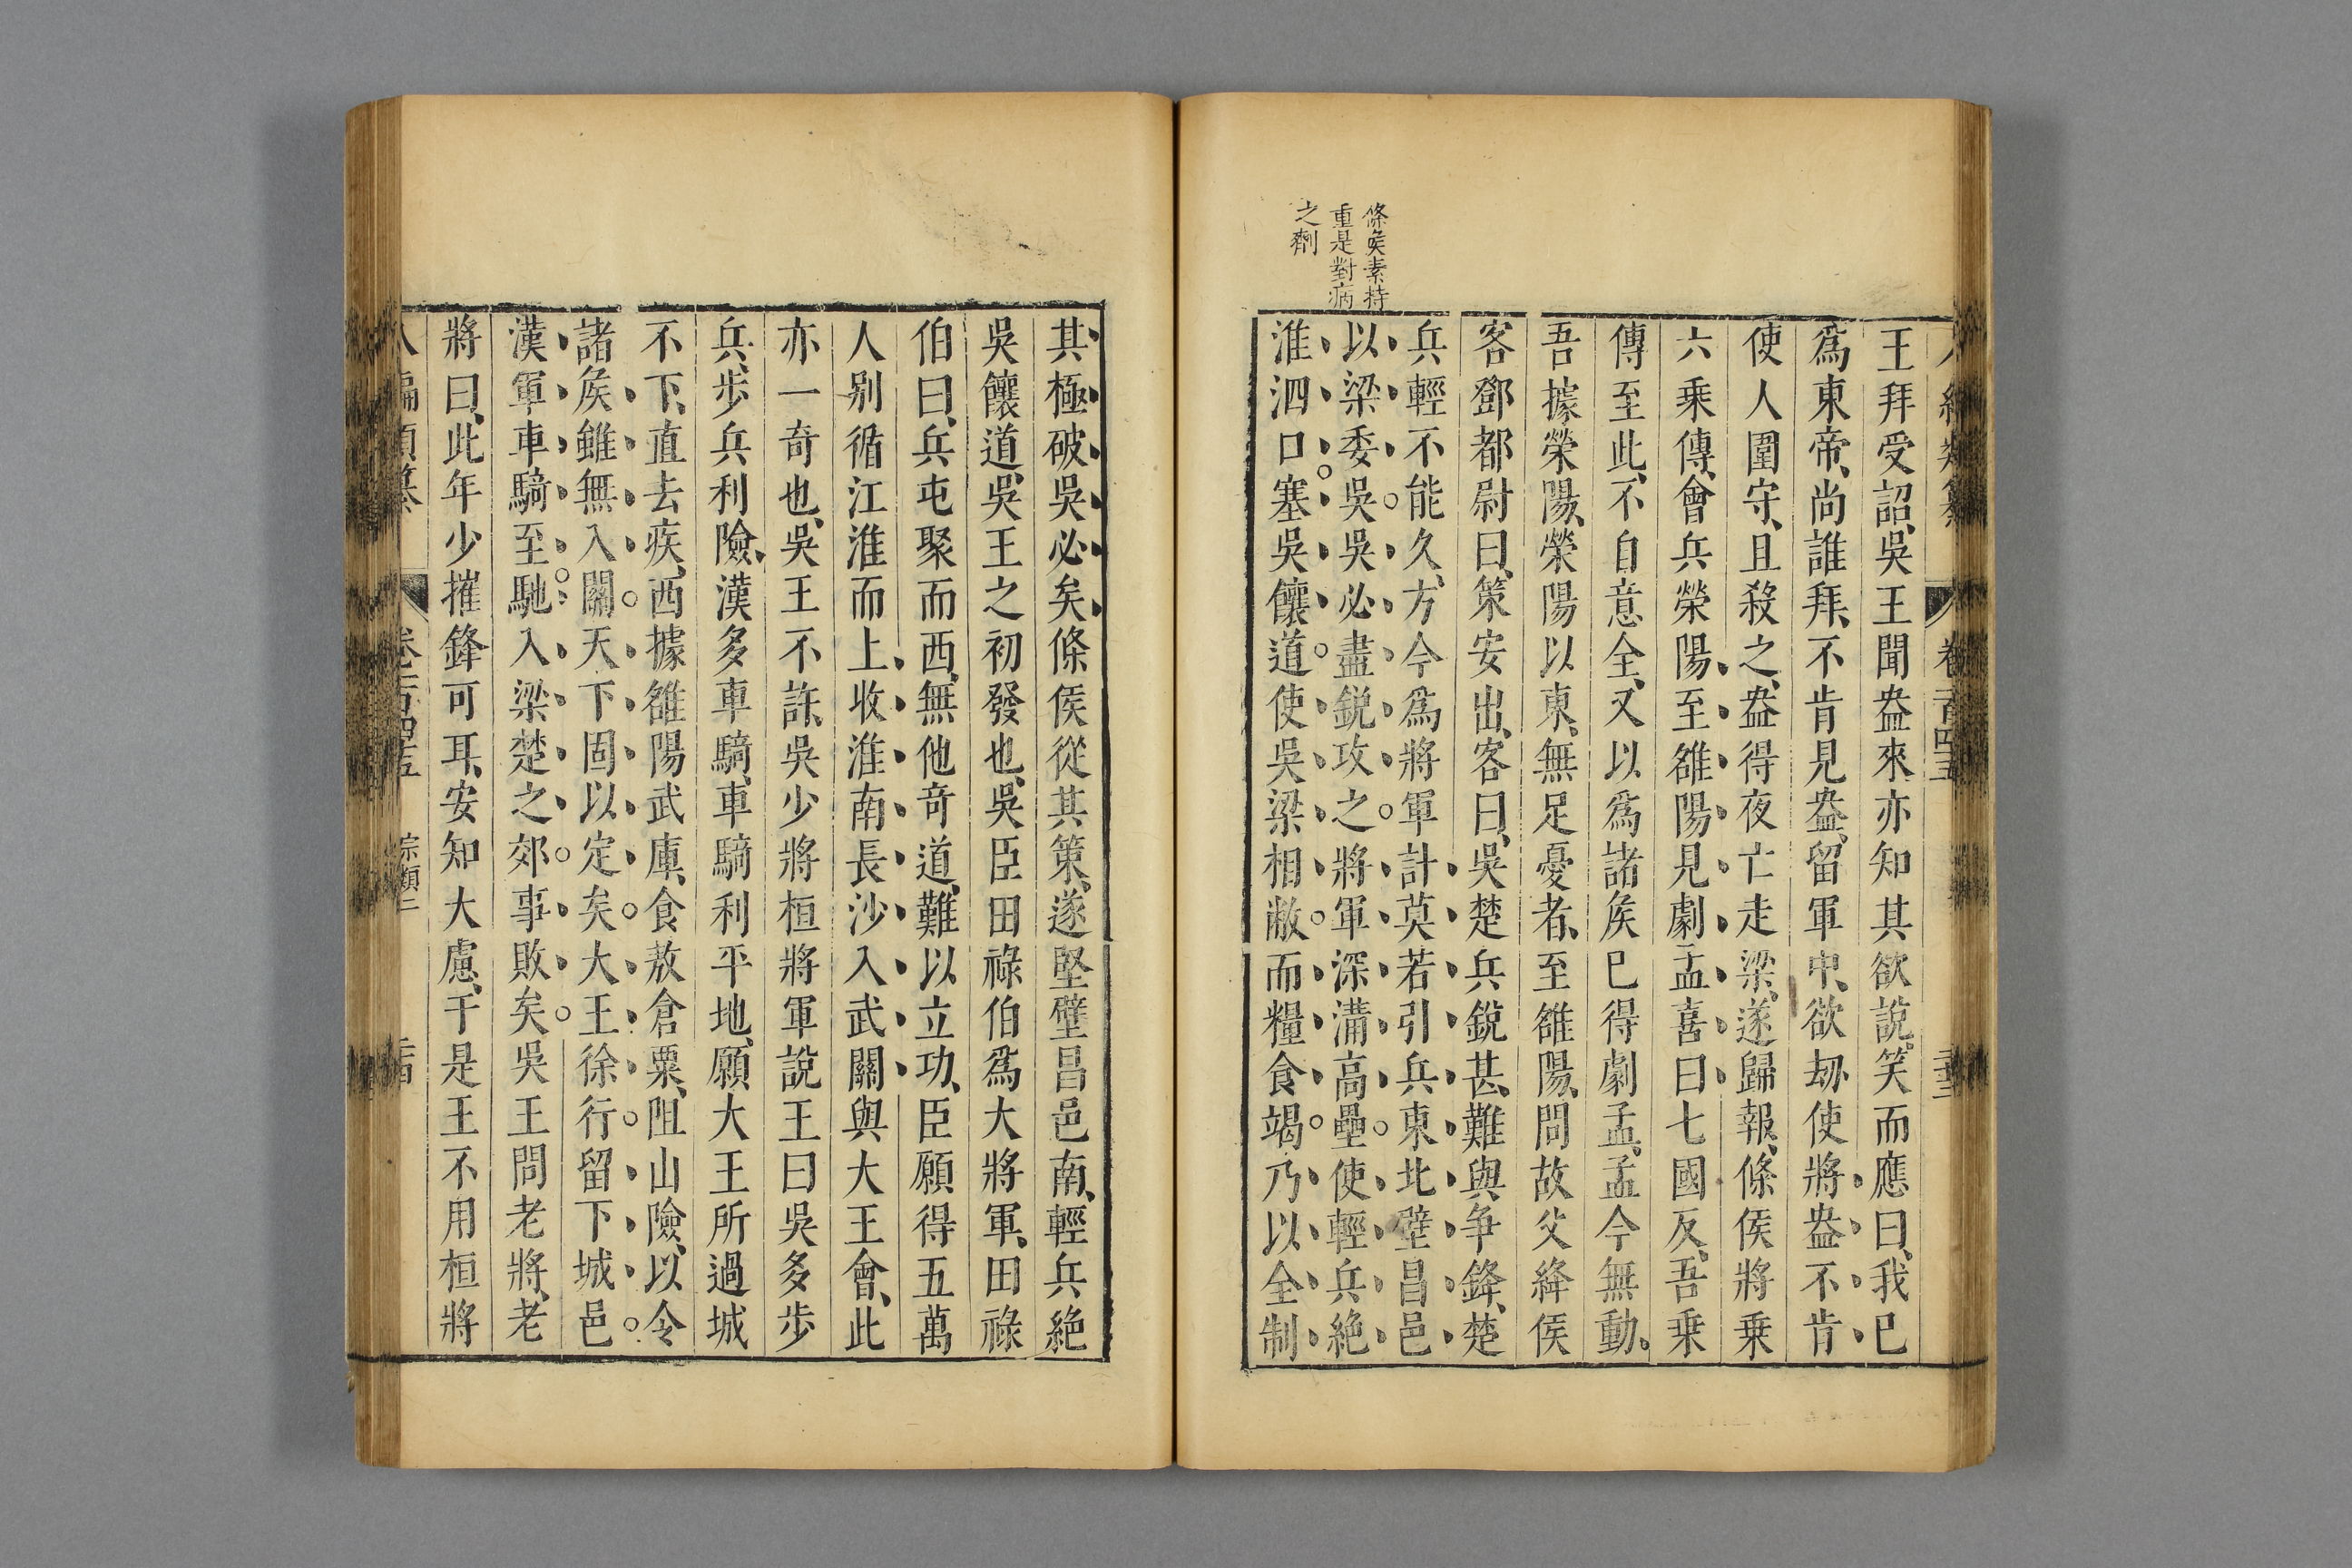 條矦素持
重是對病
之劑
王拜受詔吳王聞盎來亦知其欲說笑而應曰我已
爲東帝尚誰拜不肯見盎留軍中欲刼使將盎不肯
使人圍守且殺之盎得夜亡走梁遂歸報條侯將乗
六乘傳會兵滎陽至雒陽見劇孟喜曰七國反吾乗
傳至此不自意全又以爲諸矦已得劇孟孟今無動
吾據滎陽滎陽以東無足憂者至雒陽問故父絳侯
客鄧都尉曰策安出客曰吳楚兵銳甚難與争鋒楚
兵輕不能久方今爲將軍計莫若引兵東北壁昌邑
以梁委吳吳必盡銳攻之將軍深溝高壘使輕兵絕
淮泗口塞吳饟道使吳梁相敝而糧食竭乃以全制
其極破吳必矣條侯從其策遂堅壁昌邑南輕兵絕
吳饟道吳王之初發也吳臣田祿伯爲大將軍田祿
伯曰兵屯聚而西無他奇道難以立功臣願得五萬
人别循江淮而上收淮南長沙入武關與大王會此
亦一奇也吳王不許吳少將桓將軍說王曰吳多步
兵步兵利險漢多車騎車騎利平地願大王所過城
不下直去疾西據雒陽武庫食敖倉粟阻山險以令
諸矦雖無入關天下固以定矣大王徐行留下城邑
漢軍車騎至馳入梁楚之郊事敗矣吳王問老將老
將曰此年少摧鋒可耳安知大慮于是王不用桓將